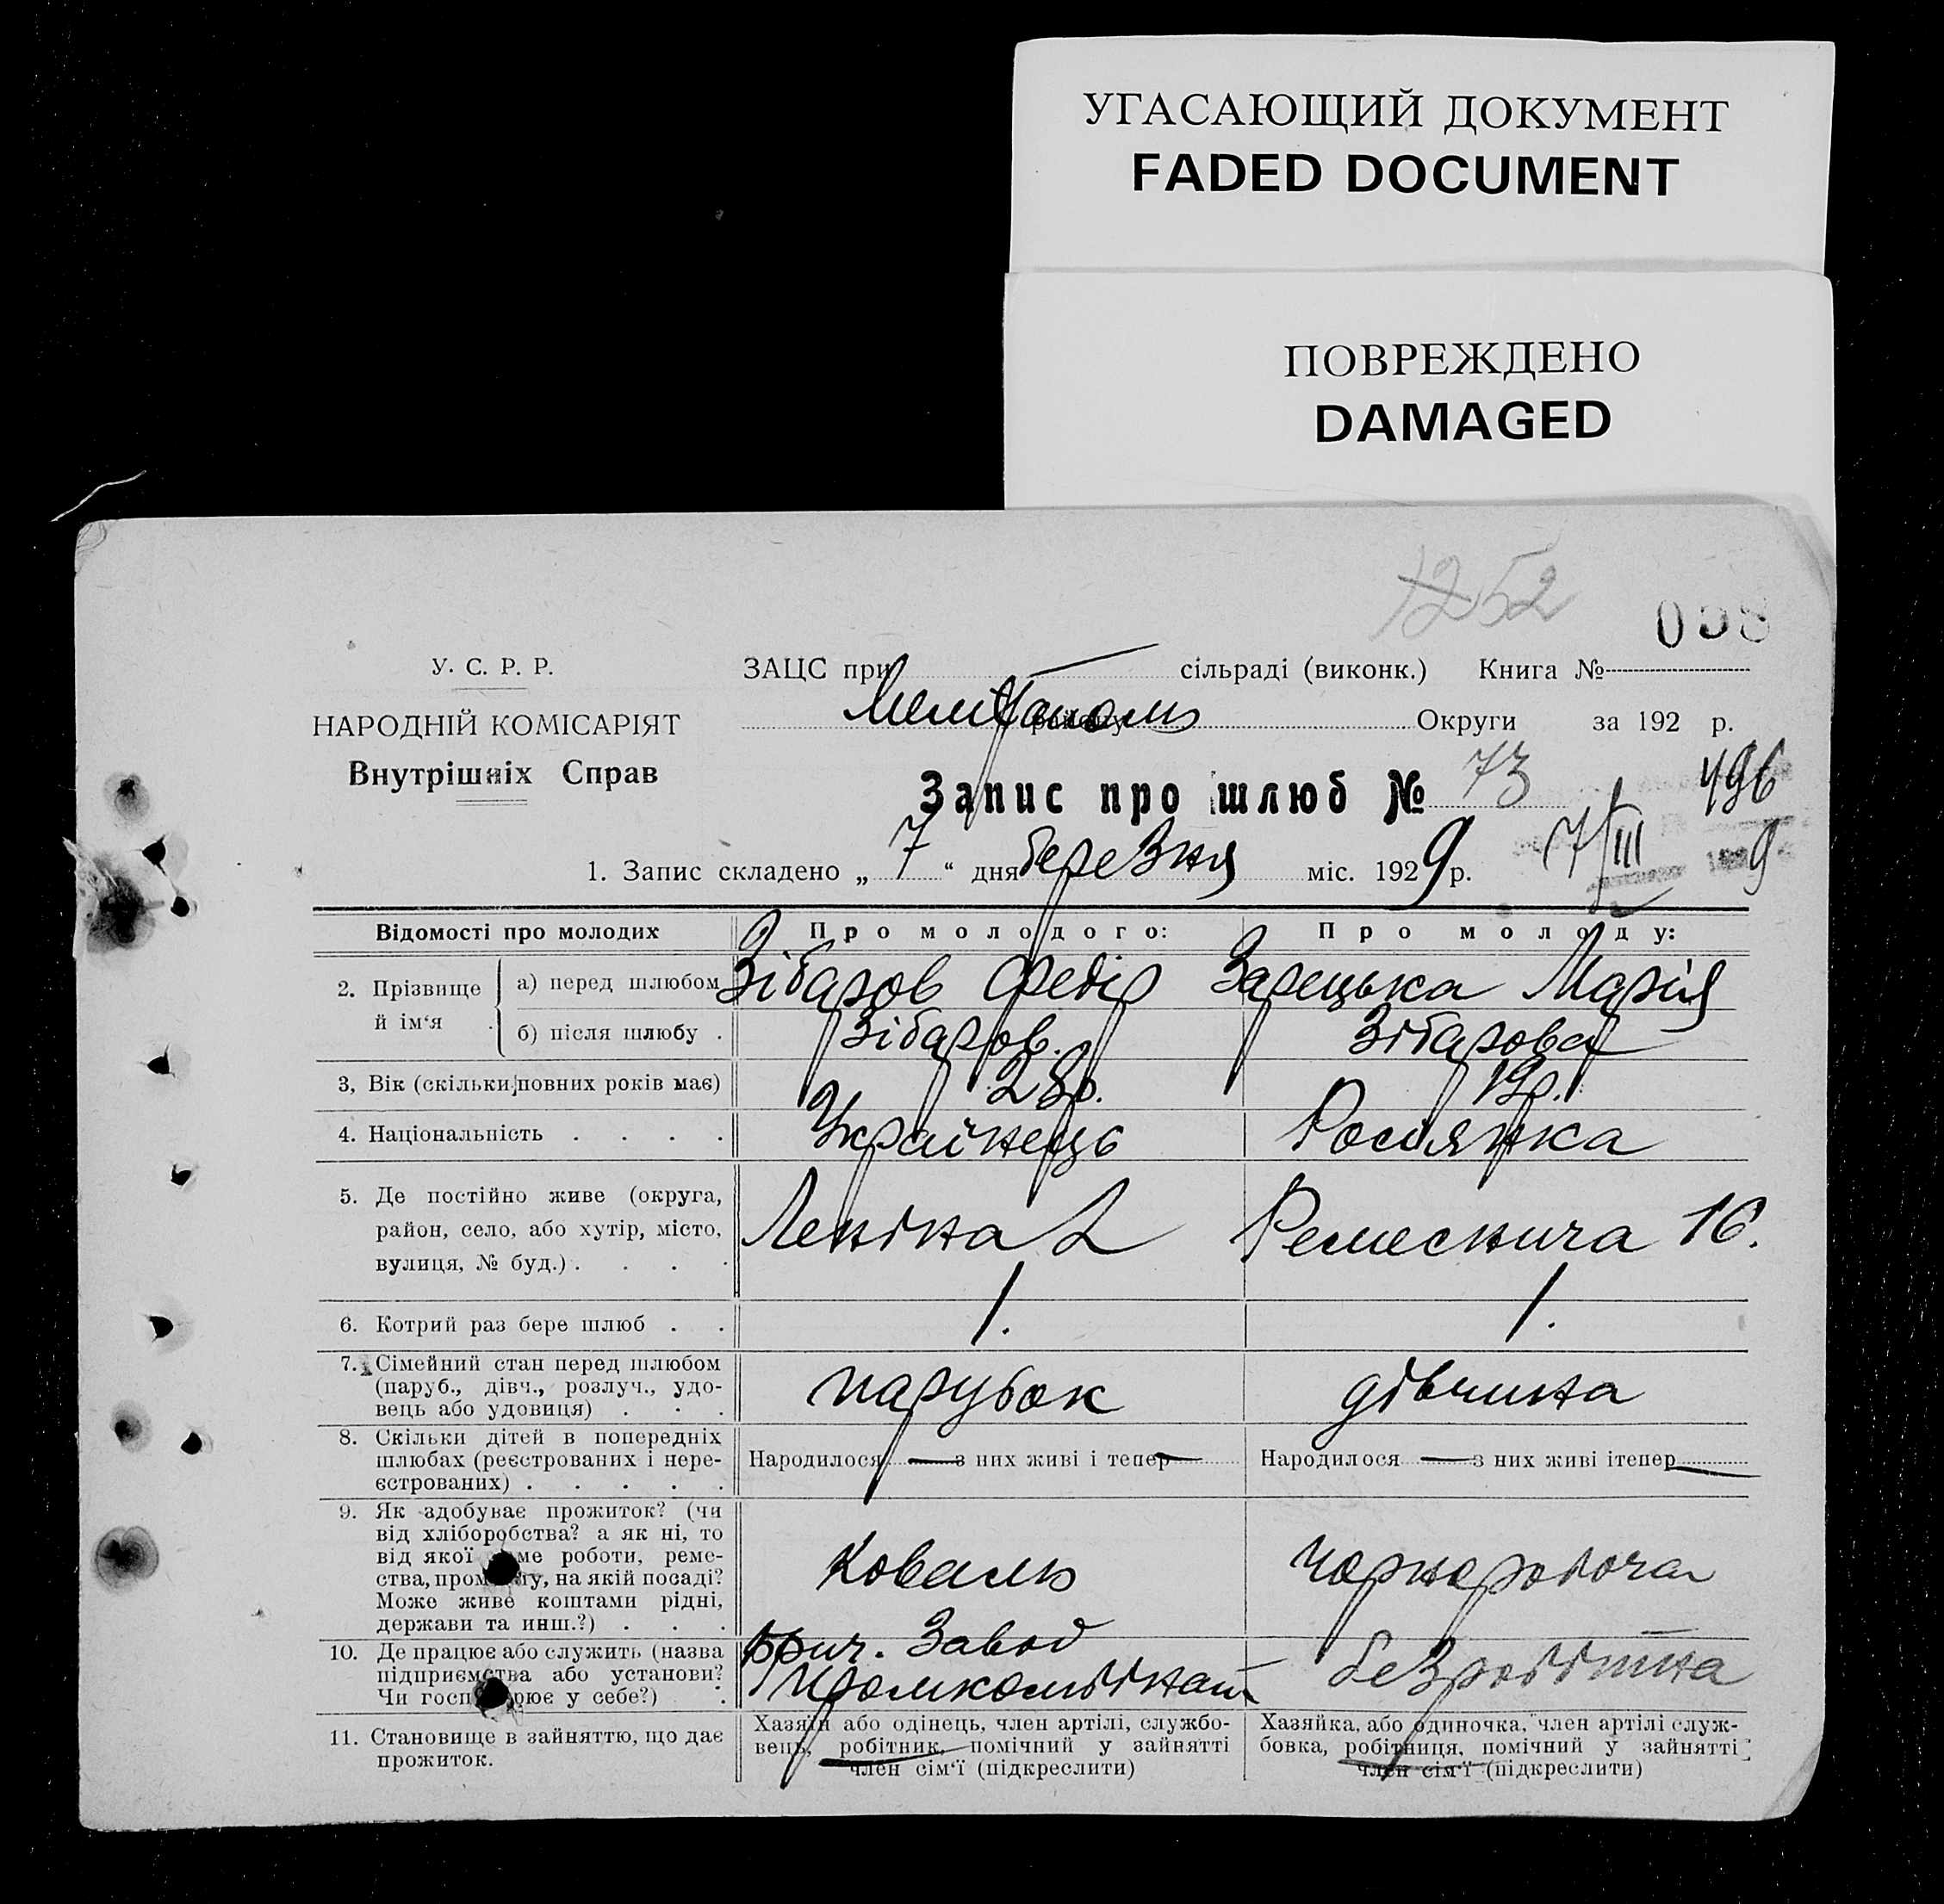 УГАСАЮЩИЙ ДОКУМЕНТ
FADED DOCUMENT
ПОВРЕЖДЕНО
DAMAGED
1252
058
У. С. Р. Р.
НАРОДНІЙ КОМІСАРІЯТ
Внутрішніх Справ
ЗАЦС при сільраді (виконк.) Книга №
Мелітополь району Округи за 192 р.
Запис про шлюб № 73
496
1. Запис складено „ 7 “ дня березня міс. 1929 р.
7/III 9
Відомості про молодих Про молодого: Про молоду:
2. Прізвище й ім‘я
а) перед шлюбом Зібаров Федір Зарецька Марія
б) після шлюбу . Зібаров. Зібарова
3, Вік (скільки повних років має) 28р. 19р.
4. Національність . . . . Українець Росіянка
5. Де постійно живе (округа,
район, село, або хутір, місто,
вулиця, № буд.) . . . .
Леніна 2 16.
6. Котрий раз бере шлюб . . 1. 1.
7. Сімейний стан перед шлюбом
(паруб., дівч., розлуч., удо-
вець або удовиця) . . .
парубок дівчина
8. Скільки дітей в попередніх
шлюбах (реєстрованих і нере-
єстрованих) . . . . .
Народилося — з них живі і тепер — Народилося — з них живі ітепер —
9. Як здобуває прожиток? (чи
від хліборобства? а як ні, то
від якої ме роботи, реме-
ства, пром у, на якій посаді?
Може живе коштами рідні,
держави та инш.?) . . .
Коваль чорноробоча
10. Де працює або служить (назва
підприємства або установи?
Чи госп рює у себе?) .
Завод
Промкомбінат
безробітна
11. Становище в зайняттю, що дає
прожиток.
Хазяїн або одінець, член артілі, службо-
вець, робітник, помічний у зайнятті
член сім‘ї (підкреслити)
Хазяйка, або одиночка, член артілі служ-
бовка, робітниця, помічний у зайнятті
член сім‘ї (підкреслити)